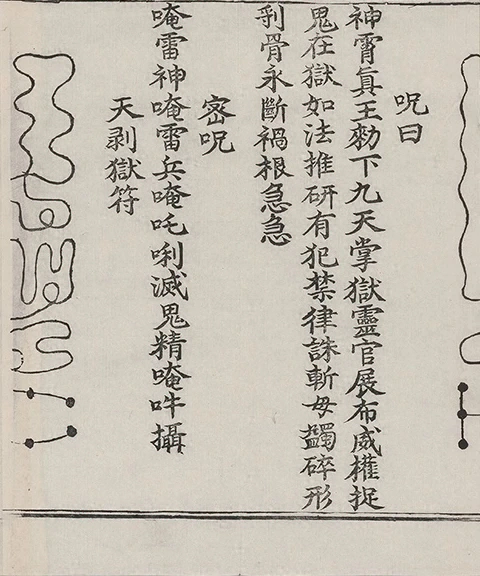 呪曰
神霄眞王勑下九天掌獄靈官展布威權捉
鬼在獄如法推研有犯禁律誅斬毋蠲碎形
剉骨永斷禍根急急
宻呪
唵雷神唵雷兵唵吒唎滅鬼精唵吽攝
天剥獄符